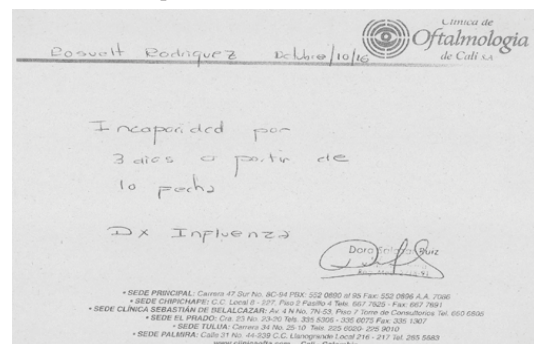 Clínica de
Oftalmología
de Cali S.A
Rosvelt Rodriguez Octubre/10/16
Incaparidad por
3 dias a partir de
la fecha
DX Influenza
Dora Ruiz
• SEDE PRINCIPAL: Carrera 47 Sur No. 8C-94 PBX: 552 0890 al 95 Fax: 552 0896 A.A. 7086
• SEDE CHIPICHAPE: C.C. Local 8 - 227, Piso 2 Pasillo 4 Tels. 667 7525 - Fax: 667 7691
• SEDE CLÍNICA SEBASTIÁN DE BELALCAZAR: Av. 4 N No. 7N-53, Piso 7 Torre de Consultorios Tel. 660 6805
• SEDE EL PRADO: Cra. 23 No. 23-20 Tels. 335 5306 - 335 6073 Fax: 335 1307
• SEDE TULUA: Carrera 34 No. 25-10 Tels. 225 6020- 225 9010
• SEDE PALMIRA: Calle 31 No. 44-239 C.C. Llanogrande Local 216 - 217 Tel. 265 5683